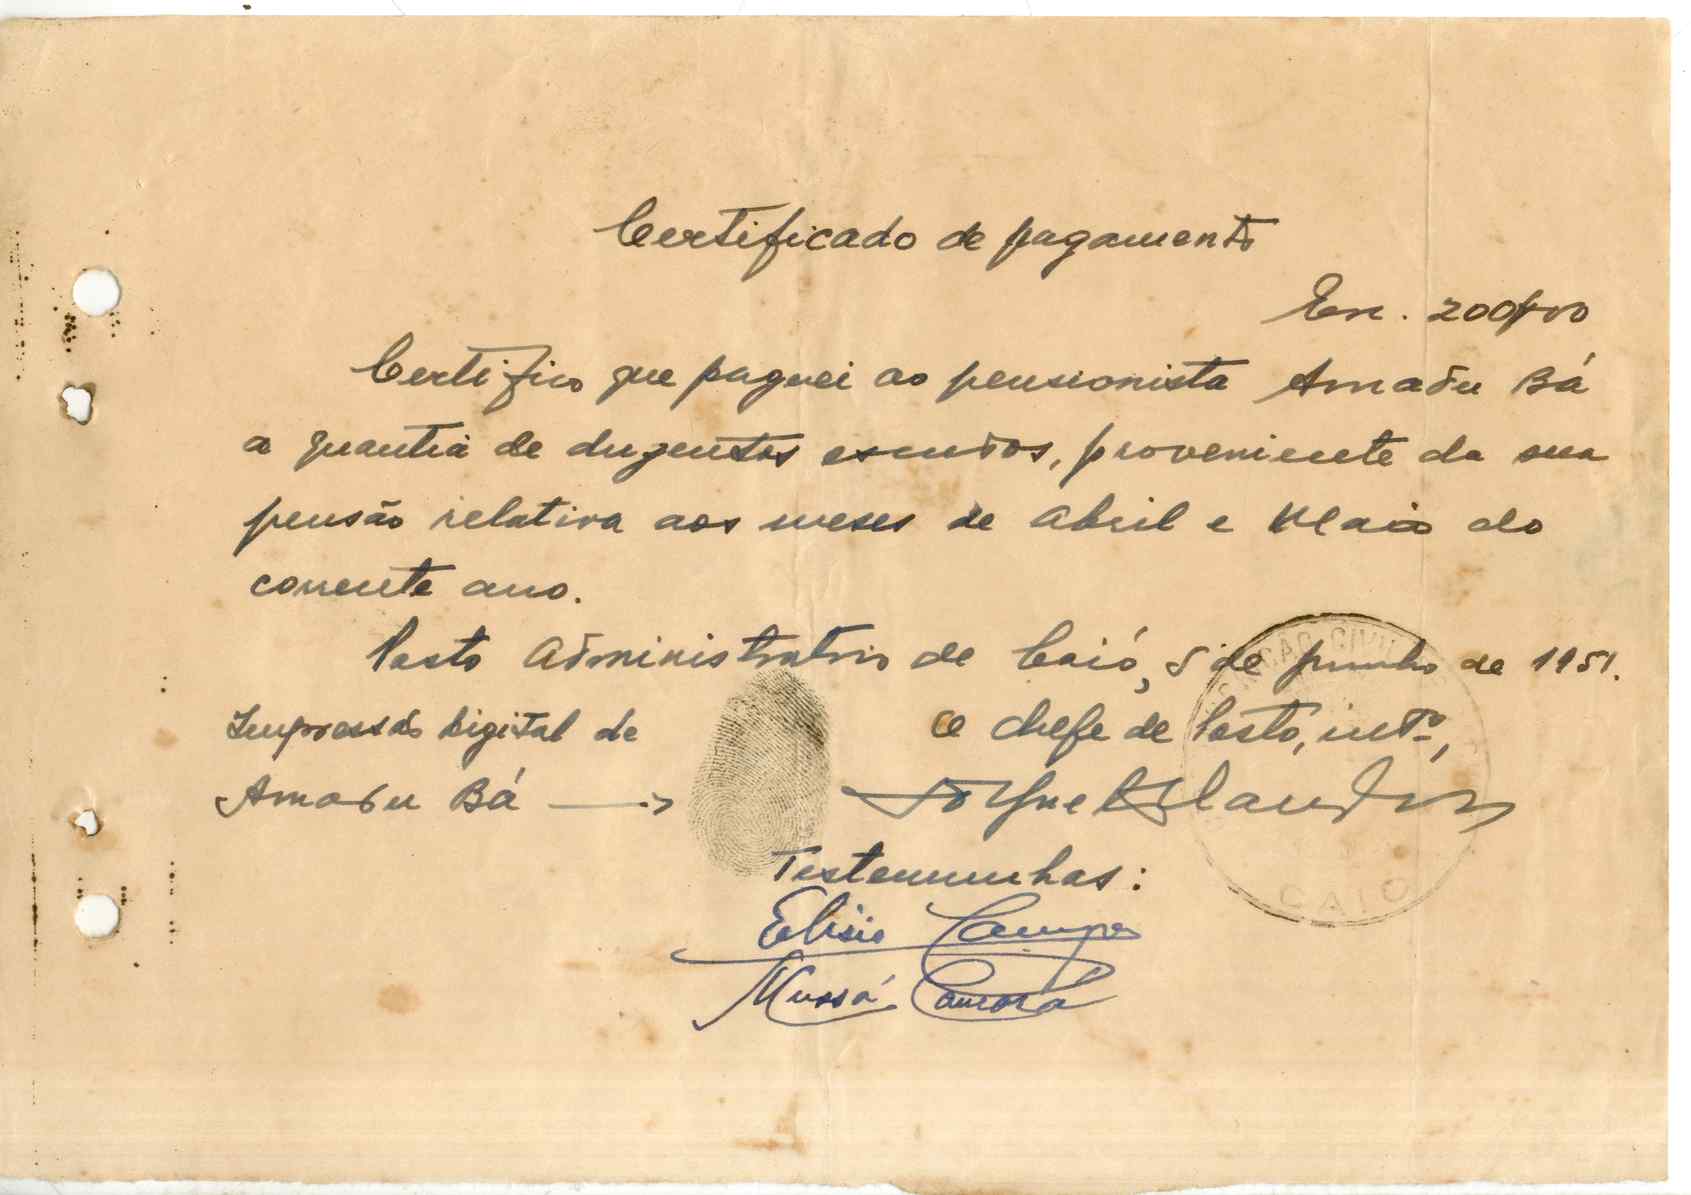 Certificado de pagamento
Esc. 200$00
Certifico que paguei ao pensionista Amadu Bá
a quantia de duzentos escudos, proveniente da sua
pensão relativa aos meses de Abril e Maio do
corrente ano.
Posto Administrativo de Caió, 5 de junho de 1951.
Impressão digital de
Amadu Bá
O Chefe de Posto, intº,
Testemunhas:
Elisio
Mussá Camará
CAIO